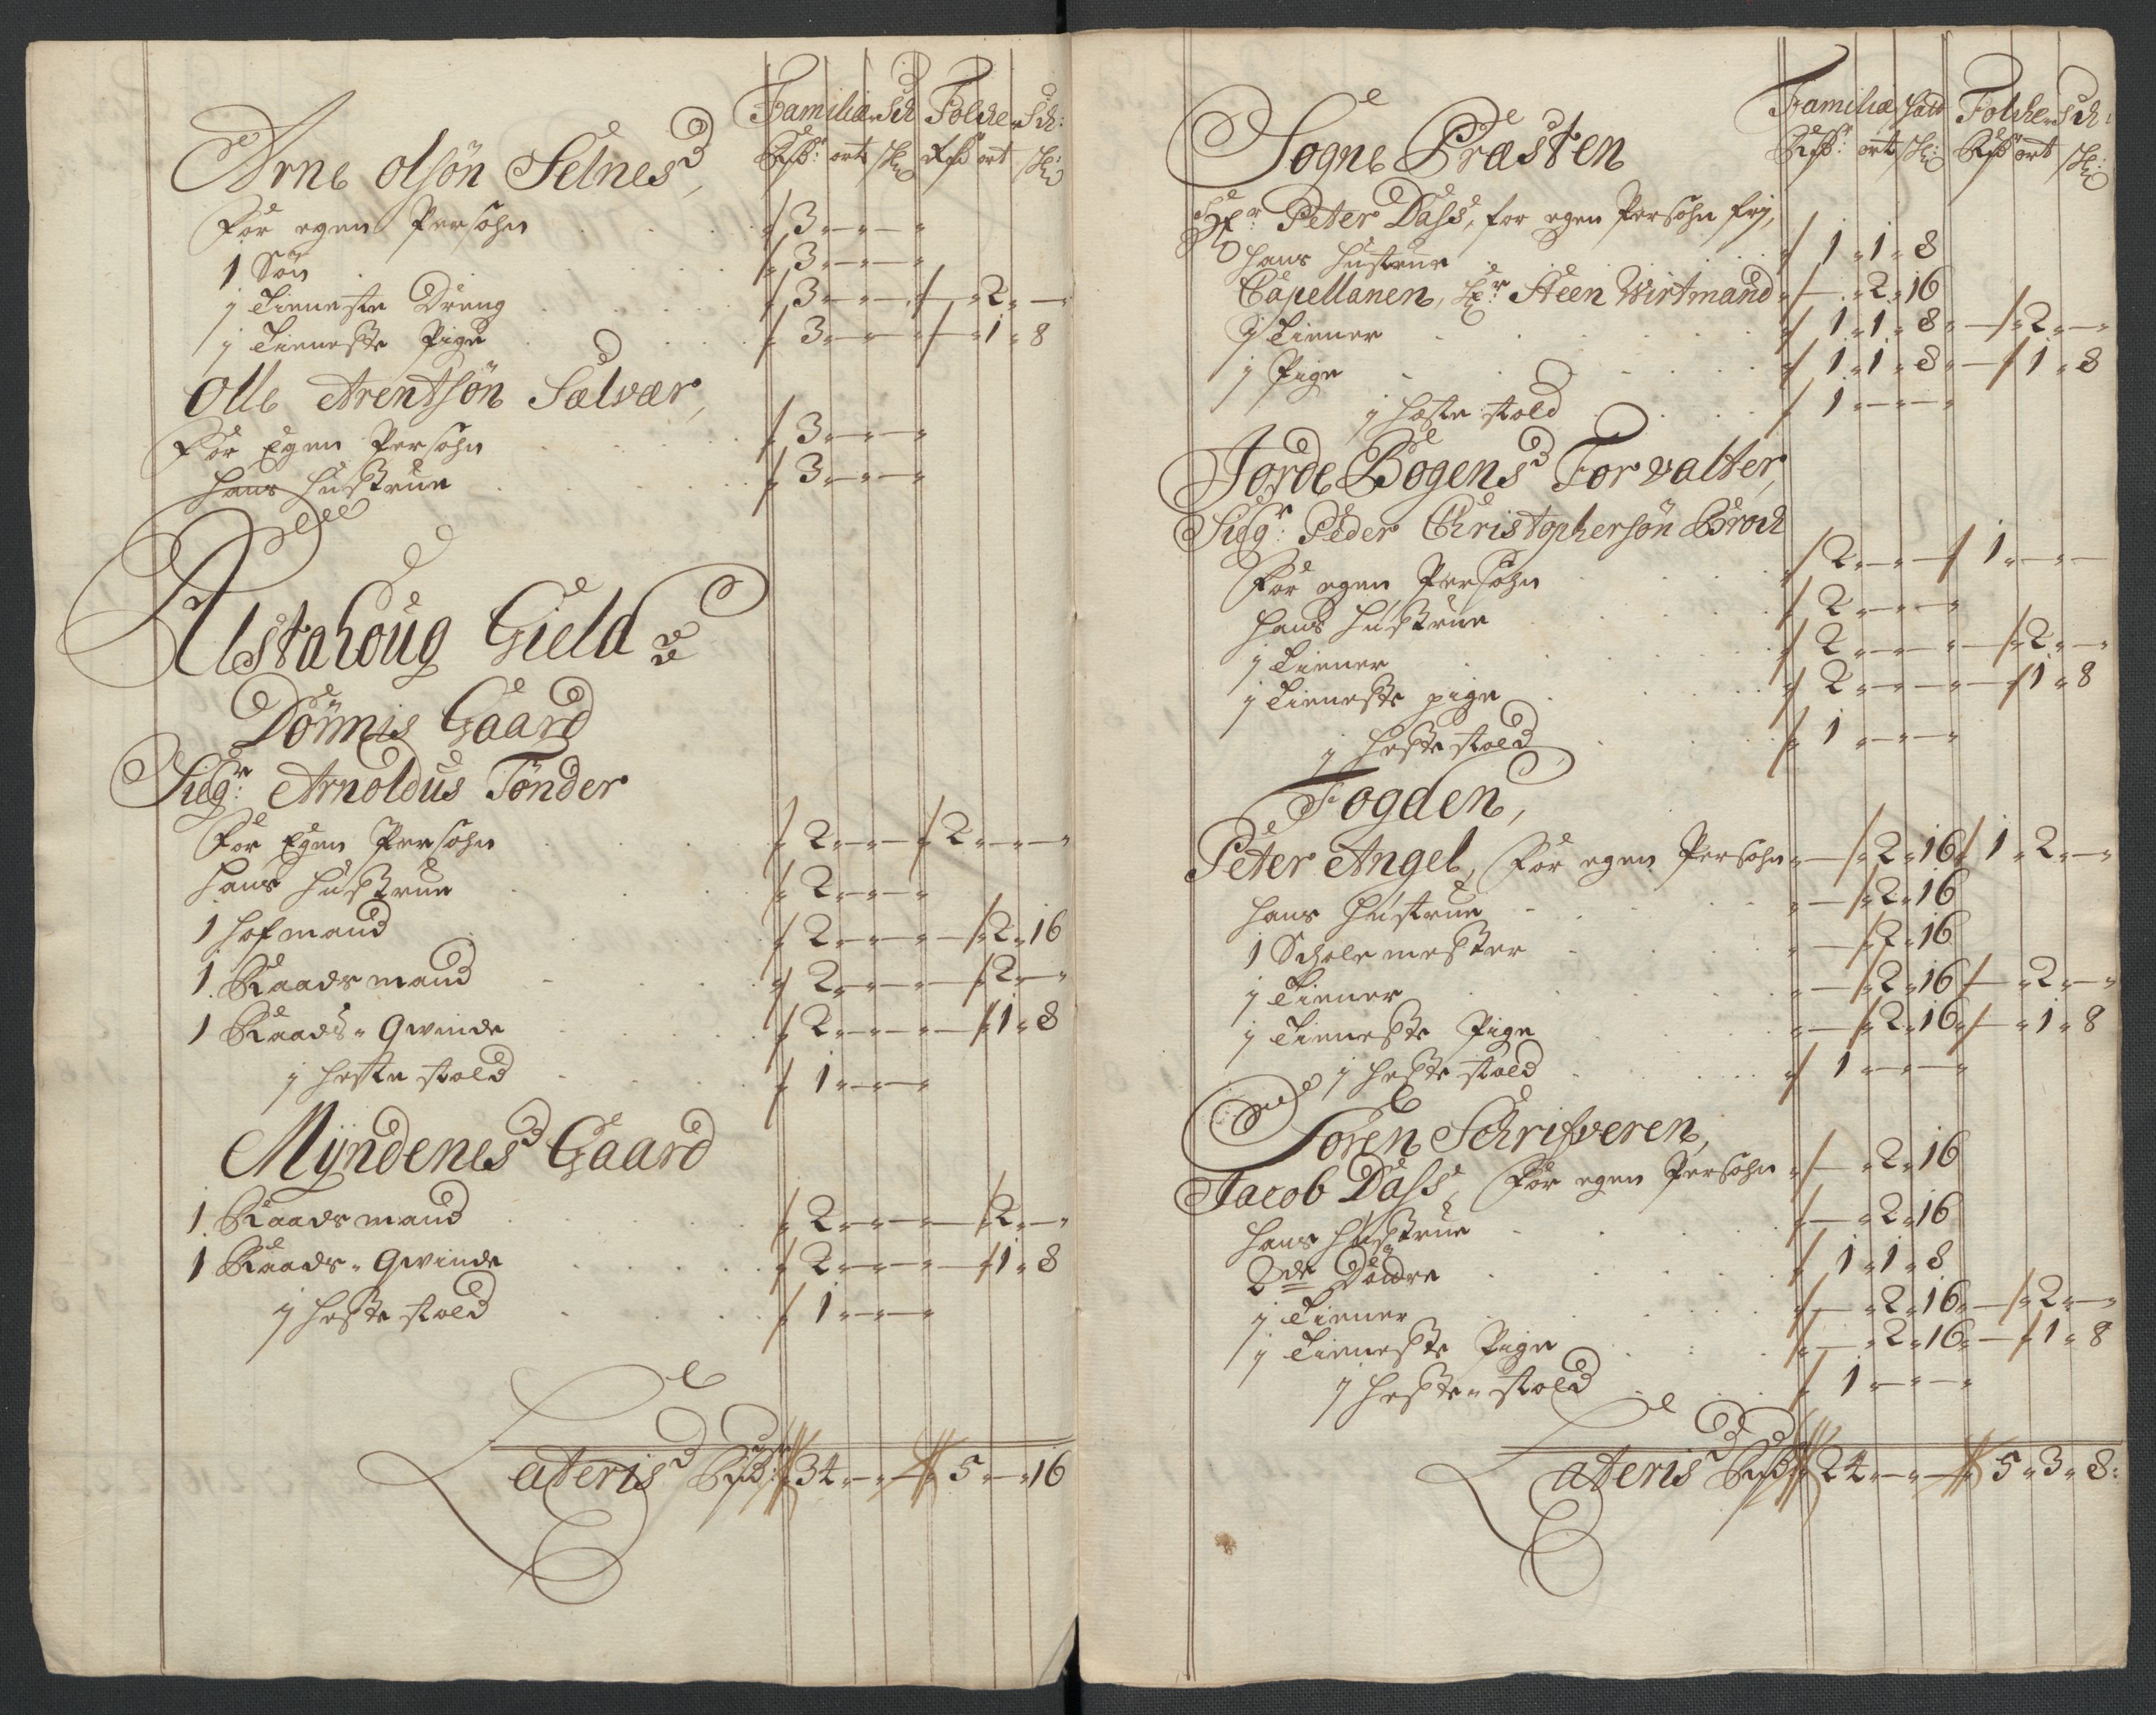 Familiæ Sch: Folcke Sch:
Rdr: ort sk: Rd ort sk:
Arne olsön Selnes,
For egen Persohn 3 - -
1 Sön 3 - -
1 Tieneste Dreng 3 - - - 2 -
1 Tieneste Pige 3 - - - 1 8
Olle Arentsön Sælvær,
For Egen Persohn 3 - -
Hans Hustrue 3 - -
Alstahoug Gield
Dönnis Gaard
Sigr: Arnoldus Tönder
For Egen Persohn 2 - - 2 - -
Hans Hustrue 2 - -
1 Hofmand 2 - - - 2 16
1 Raadsmand 2 - - - 2 -
1 Raads-Qvinde 2 - - - 1 8
1 Heste stald 1 - -
Myndenes Gaard
1 Raadsmand 2 - - - 2 -
1 Raads-Qvinde 2 - - - 1 8
1 Heste stald 1 - -
Lateris Rdr: 34 - - 5 - 16
Familiæ Skatt Folcke Sch:
Rdr: ort sk: Rdr ort sk:
Sogne Præsten
Hr: Peter Dass, for egen Persohn frj,
Hans Hustrue 1 1 8
Capellanen, Hr: Steen Wirtmand - 2 16
1 Tiener 1 1 8 - 2 -
1 Pige 1 1 8 - 1 8
1 Hæste stald 1 - -
Jorde Bogens Forvalter,
Sigr: Peder Christophersön Brock
For egen Persohn 2 - - 1 - -
Hans Hustrue 2 - -
1 Tiener 2 - - - 2 -
1 Tieneste pige 2 - - - 1 8
1 Heste stald 1 - -
Fogden,
Peter Angel, For egen Persohn - 2 16 1 2 -
Hans Hustrue - 2 16
1 Scholemester - 2 16
1 Tiener - 2 16 - 2 -
1 Tieneste Pige - 2 16 - 1 8
1 Heste stald 1 - -
Soren Schrifveren,
Jacob Dass, For egen Persohn - 2 16
Hans Hustrue - 2 16
2de Döttre 1 1 8
1 Tiener - 2 16 - 2 -
1 Tieneste Pige - 2 16 - 1 8
1 Heste-stald 1 - -
Lateris Rdr 24 - - 5 3 8